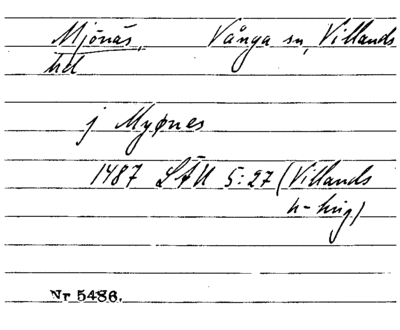 Mjönäs, Vånga sn, Villands
hd
j Myønes
1487 LÄU 5:27 (Villands
h-
Nr 5486.